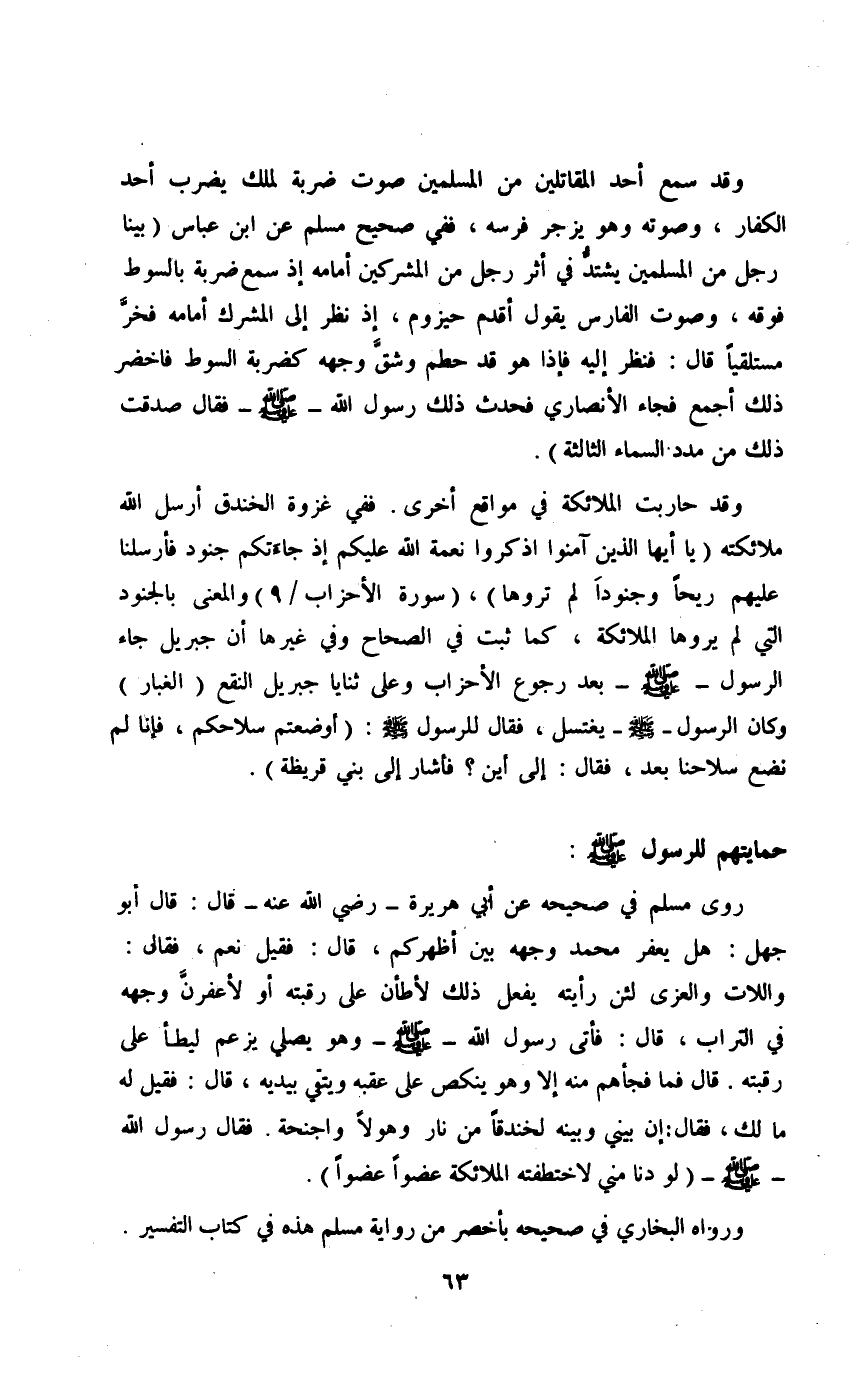 وقد سمع أحد المقاتلين من المسلمين صوت ضربة لملك يضرب أحد
الكفار ، وصوته وهو يزجر فرسه ، ففي صحيح مسلم عن ابن عباس ( بينا
رجل من المسلمين يشتدُّ في أثر رجل من المشركين أمامه إذ سمع ضربة بالسوط
فوقه ، وصوت الفارس يقول أقدم حيزوم ، إذ نظر إلى المشرك أمامه فخرَّ
مستلقياً قال : فنظر إليه فإذا هو قد حطم وشقَّ وجهه كضربة السوط فاخضر
ذلك أجمع فجاء الأنصاري فحدث ذلك رسول الله ـ ﷺ ـ فقال صدقت
ذلك من مدد السماء الثالثة ) .
وقد حاربت الملائكة في مواقع أخرى . ففي غزوة الخندق أرسل الله
ملائكته ( يا أيها الذين آمنوا اذكروا نعمة الله عليكم إذ جاءتكم جنود فأرسلنا
عليهم ريحاً وجنوداً لم تروها ) ، ( سورة الأحزاب / ٩ ) والمعنى بالجنود
التي لم يروها الملائكة ، كما ثبت في الصحاح وفي غيرها أن جبريل جاء
الرسول ـ ﷺ ـ بعد رجوع الأحزاب وعلى ثنايا جبريل النقع ( الغبار )
وكان الرسول ـ ﷺ ـ يغتسل ، فقال للرسول ﷺ : ( أوضعتم سلاحكم ، فإنا لم
نضع سلاحنا بعد ، فقال : إلى أين ؟ فأشار إلى بني قريظة ) .
حمايتهم للرسول ﷺ :
روى مسلم في صحيحه عن أبي هريرة ـ رضي الله عنه ـ قال : قال أبو
جهل : هل يعفر محمد وجهه بين أظهركم ، قال : فقيل نعم ، فقال :
واللات والعزى لئن رأيته يفعل ذلك لأطأن على رقبته أو لأعفرنَّ وجهه
في التراب ، قال : فأتى رسول الله ـ ﷺ ـ وهو يصلي يزعم ليطأ على
رقبته . قال فما فجأهم منه إلا وهو ينكص على عقبه ويتقي بيديه ، قال : فقيل له
ما لك ، فقال : إن بيني وبينه لخندقاً من نار وهولاً واجنحة . فقال رسول الله
ـ ﷺ ـ ( لو دنا مني لاختطفته الملائكة عضواً عضواً ) .
ورواه البخاري في صحيحه بأخصر من رواية مسلم هذه في كتاب التفسير .
٦٣